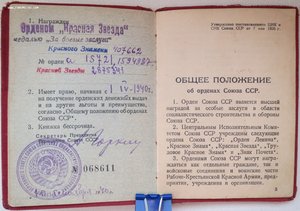 1. Награжден
Орденом „Красная Звезда"
медалью „За боевые заслуги"
Красного Знамени 407662
орден
15721, 1534887
Красной Звезды 2875341
2. Имеет право, начиная с
на получение орденских денежных выдач
и на другие льготы и преимущества,
согласно „Общему положению об орденах
Союза ССР".
3. Книжка бессрочная.
Секретарь Президиума
№ 068611
Утверждено постановлением ЦИК и
СНК Союза ССР от 7 мая 1936 г.
ОБЩЕЕ ПОЛОЖЕНИЕ
об орденах Союза ССР.
1. Орден Союза ССР является высшей
наградой за особые заслуги в области
социалистического строительства и обороны
Союза ССР.
2. Центральным Исполнительным Комитетом
Союза ССР учреждены следующие
ордена Союза ССР: „Орден Ленина",
„Красное Знамя", „Красная Звезда", „Трудовое
Красное Знамя" и „Знак Почета".
3. Орденами Союза ССР могут награждаться
как отдельные граждане, так
и войсковые единения и воинские части
Рабоче-Крестьянской Красной Армии, предприятия,
учреждения и организации.
3